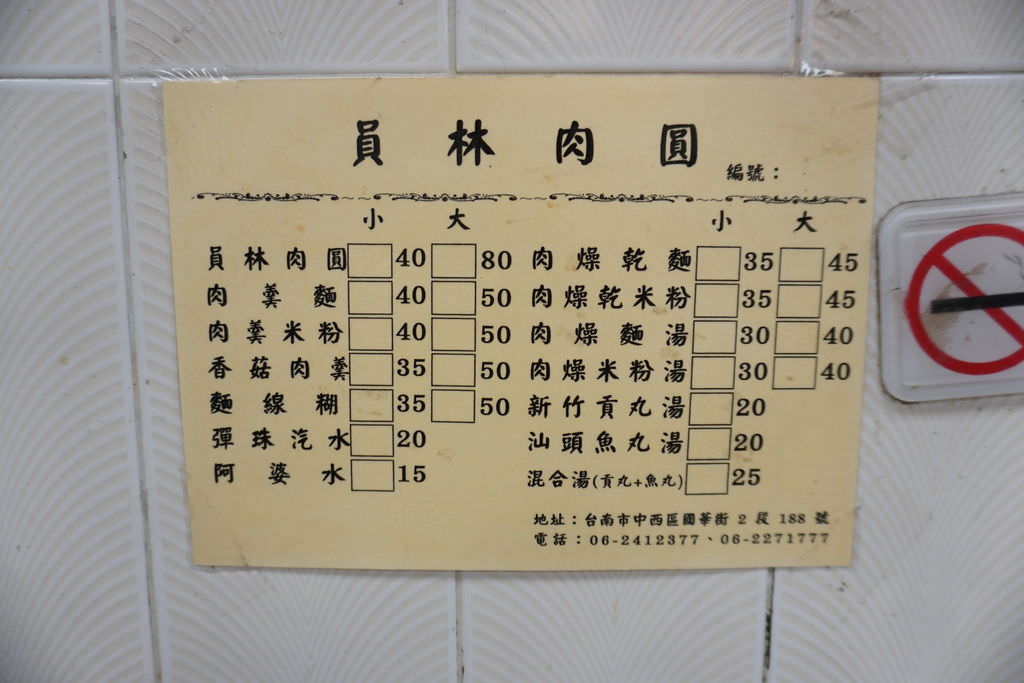 員林肉圓
編號：
小 大 小 大
員林肉圓 40 80 肉燥乾麵 35 45
肉羹麵 40 50 肉燥乾米粉 35 45
肉羹米粉 40 50 肉燥麵湯 30 40
香菇肉羹 35 50 肉燥米粉湯 30 40
麵線糊 35 50 新竹貢丸湯 20
彈珠汽水 20 汕頭魚丸湯 20
阿婆水 15 混合湯(貢丸+魚丸) 25
地址：台南市中西區國華街 2 段 188 號
電話：06-2412377、06-2271777